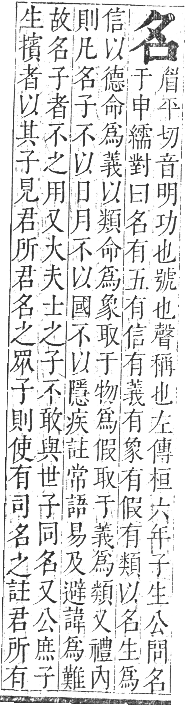 名
眉平切音明功也號也聲稱也左傳桓六年子生公問名
于申繻對曰名有五有信有義有象有假有類以名生爲
信以德命爲義以類命爲象取于物爲假取于義爲類又禮內
則凡名子不以日月不以國不以隱疾註常語易及避諱爲難
故名子者不之用又大夫士之子不敢與世子同名又公庶子
生擯者以其子見君所君名之眾子則使有司名之註君所有